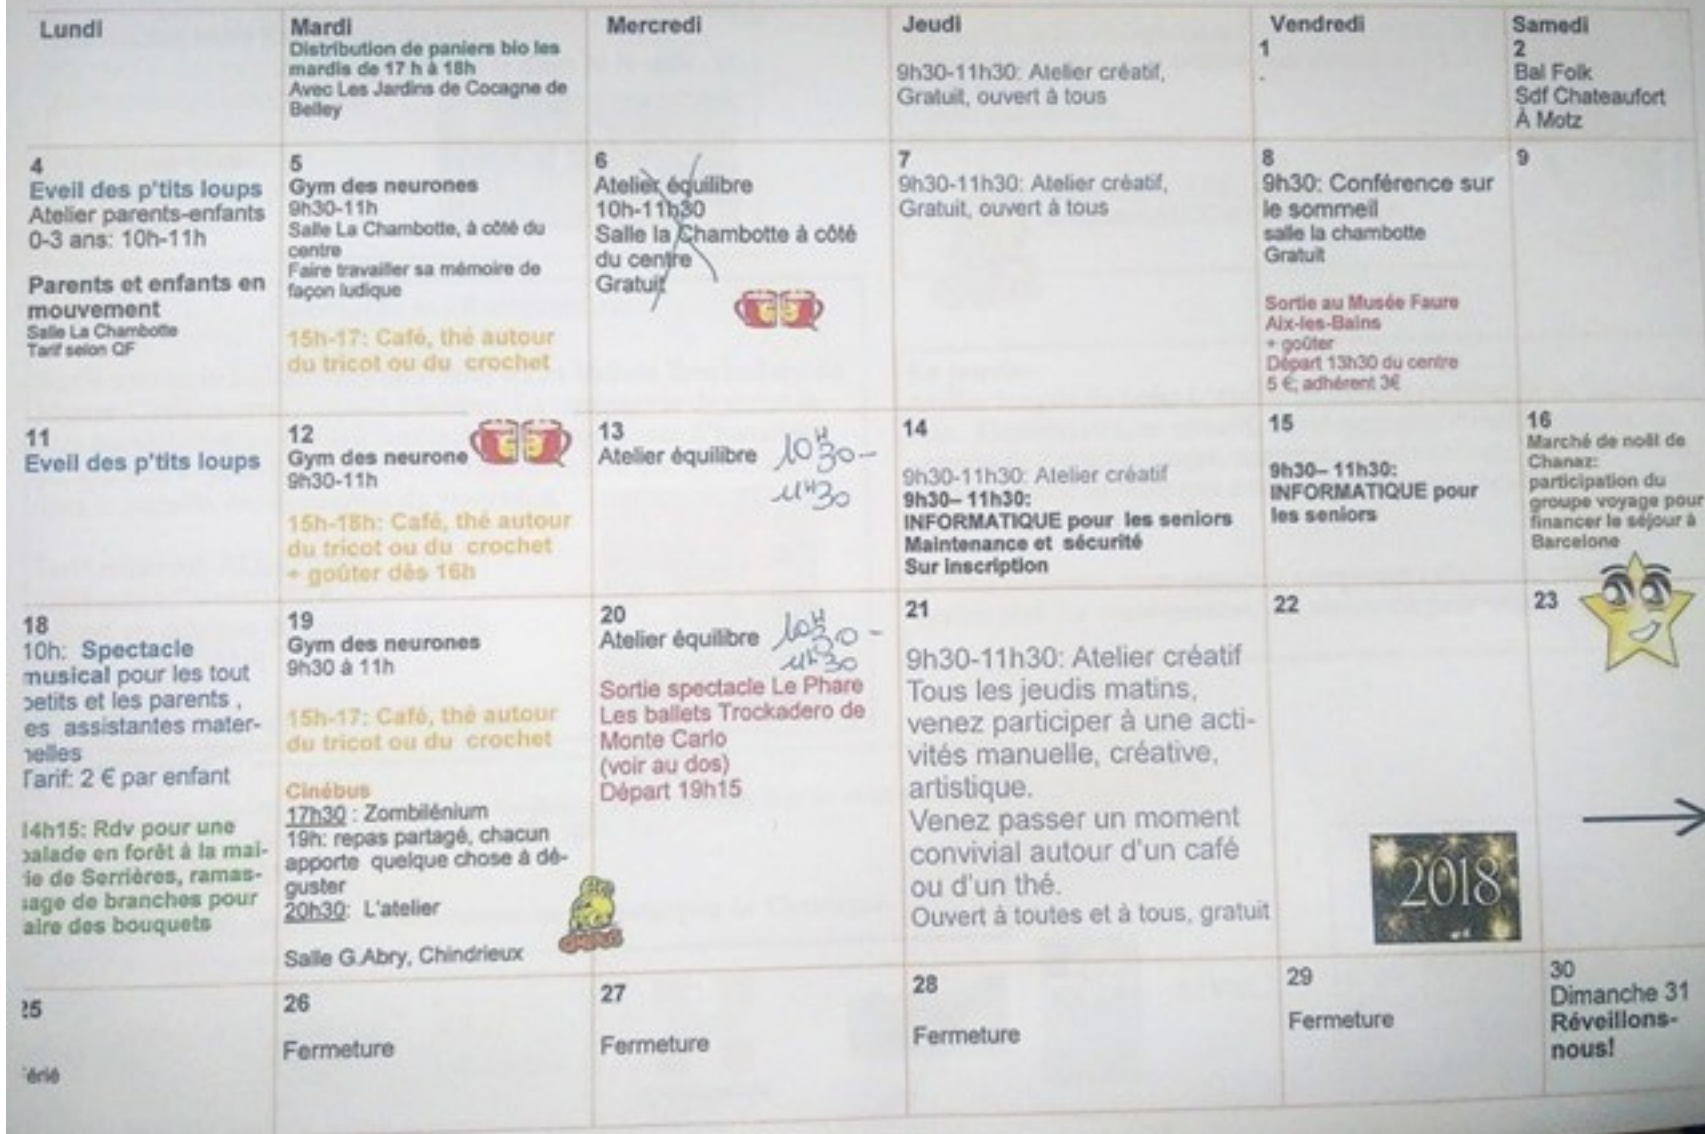 Lundi
Mardi
Distribution de paniers bio les
mardis de 17 h à 18h
Avec Les Jardins de Cocagne de
Belley
Mercredi
Jeudi
9h30-11h30: Atelier créatif,
Gratuit, ouvert à tous
Vendredi
1
.
Samedi
2
Bal Folk
Sdf Chateaufort
À Motz
4
Eveil des p'tits loups
Atelier parents-enfants
0-3 ans: 10h-11h
Parents et enfants en
mouvement
Salle La Chambotte
Tarif selon QF
5
Gym des neurones
9h30-11h
Salle La Chambotte, à côté du
centre
Faire travailler sa mémoire de
façon ludique
15h-17: Café, thé autour
du tricot ou du crochet
6
Atelier équilibre
10h-11h30
Salle la Chambotte à côté
du centre
Gratuit
7
9h30-11h30: Atelier créatif,
Gratuit, ouvert à tous
8
9h30: Conférence sur
le sommeil
salle la chambotte
Gratuit
Sortie au Musée Faure
Aix-les-Bains
+ goûter
Départ 13h30 du centre
5 €; adhérent 3€
9
11
Eveil des p'tits loups
12
Gym des neurone
9h30-11h
15h-18h: Café, thé autour
du tricot ou du crochet
+ goûter dès 16h
13
Atelier équilibre 10H30-
11H30
14
9h30-11h30: Atelier créatif
9h30– 11h30:
INFORMATIQUE pour les seniors
Maintenance et sécurité
Sur inscription
15
9h30– 11h30:
INFORMATIQUE pour
les seniors
16
Marché de noël de
Chanaz:
participation du
groupe voyage pour
financer le séjour à
Barcelone
18
10h: Spectacle
musical pour les tout
petits et les parents ,
es assistantes mater-
nelles
Tarif: 2 € par enfant
14h15: Rdv pour une
balade en forêt à la mai-
ie de Serrières, ramas-
sage de branches pour
aire des bouquets
19
Gym des neurones
9h30 à 11h
15h-17: Café, thé autour
du tricot ou du crochet
Cinébus
17h30 : Zombilénium
19h: repas partagé, chacun
apporte quelque chose à dé-
guster
20h30: L'atelier
CINÉBUS
Salle G.Abry, Chindrieux
20
Atelier équilibre 10H30-
11H30
Sortie spectacle Le Phare
Les ballets Trockadero de
Monte Carlo
(voir au dos)
Départ 19h15
21
9h30-11h30: Atelier créatif
Tous les jeudis matins,
venez participer à une acti-
vités manuelle, créative,
artistique.
Venez passer un moment
convivial autour d'un café
ou d'un thé.
Ouvert à toutes et à tous, gratuit
22
2018
23
25
érié
26
Fermeture
27
Fermeture
28
Fermeture
29
Fermeture
30
Dimanche 31
Réveillons-
nous!